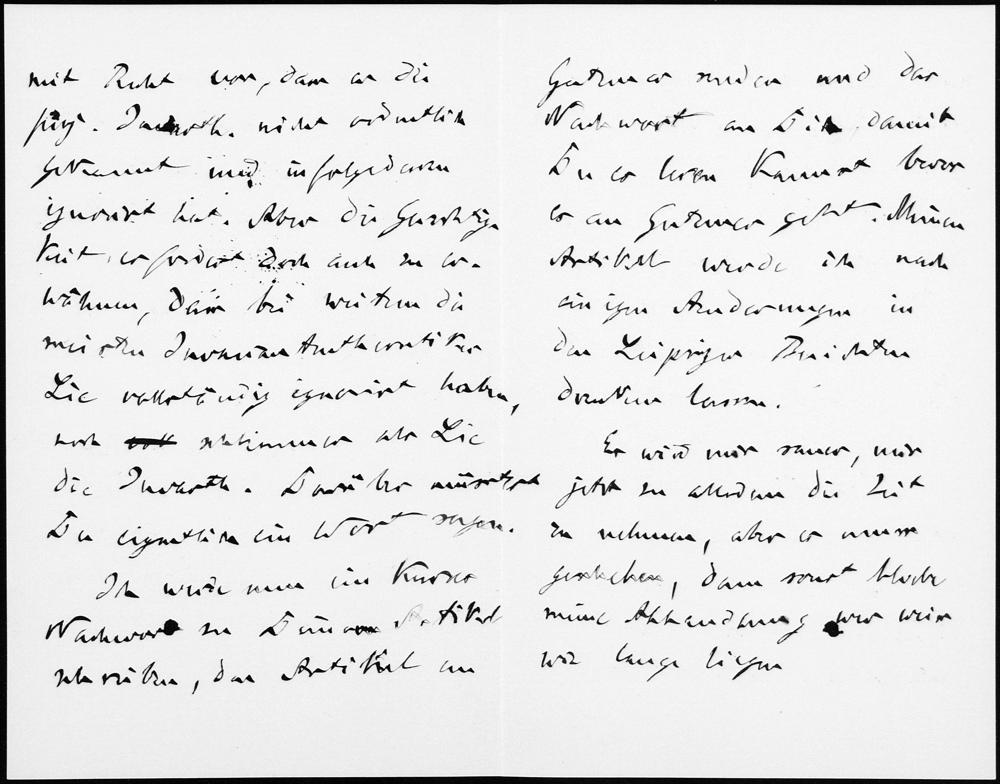 mit Recht vor, dass er die
sog. Invarth. nicht ordentlich
gekannt und infolgedessen
ignorirt hat. Aber die Gerechtig
keit erfordert doch auch zu er-
wähnen, dass bei weitem die
meisten Invariantentheoretiker
Lie vollständig ignorirt haben,
noch schlimmer als Lie
die Invarth. Darüber müsstest
Du eigentlich ein Wort sagen.
Ich werde nun ein kurzes
Nachwort zu Deinem Artikel
schreiben, den Artikel an
Gutzmer senden und das
Nachwort an Dich, damit
Du es lesen kannst bevor
es an Gutzmer geht. Meinen
Artikel werde ich nach
einigen Aenderungen in
den Leipziger Berichten
drucken lassen.
Es wird mir sauer, mir
jetzt zu alledem die Zeit
zu nehmen, aber es muss
geschehen, denn sonst bliebe
meine Abhandlung wer weiss
wie lange liegen